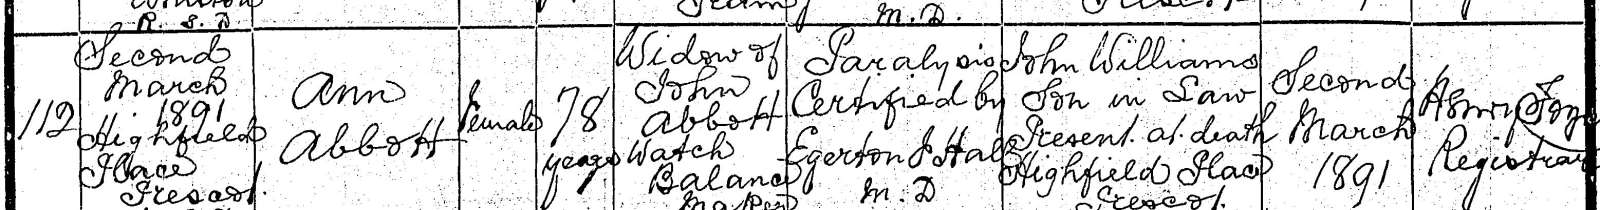 R. S. D
M. D.
112
Second
March
1891
Highfield
Place
Prescot.
Ann
Abbott
Female
78
years
Widow of
John
Abbott
Watch
Balance
Maker
Paralysis
Certified by
Egerton F Hall
M. D
John Williams
Son in Law
Present at death
Highfield Place
Prescot.
Second
March
1891
Registrar